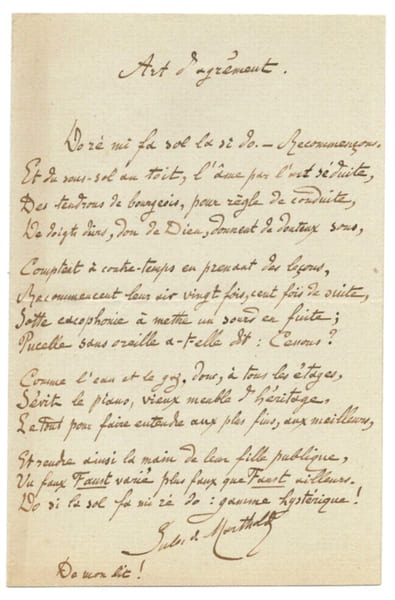 Art d'agrément.
Do ré mi fa sol la si do. — Recommençons.
Et du sous-sol au toit, l'âme par l'art séduite,
Des tendrons de bourgeois, pour règle de conduite,
De doigts durs, don de Dieu, donnent de douteux sons,
Comptent à contre-temps en prenant des leçons,
Recommencent leur air vingt fois, cent fois de suite,
Sotte cacophonie à mettre un sourd en fuite ;
Pucelle sans oreille a-t-elle dit : Cessons ?
Comme l'eau et le gaz, donc, à tous les étages,
Sévit le piano, vieux meuble d'héritage,
Le tout pour faire entendre aux plus fins, aux meilleurs,
Et rendre ainsi la main de leur fille publique,
Un faux Faust varié plus faux que Faust ailleurs.
Do si la sol fa mi ré do : gamme hystérique !
Jules de Marthold
De mon lit !